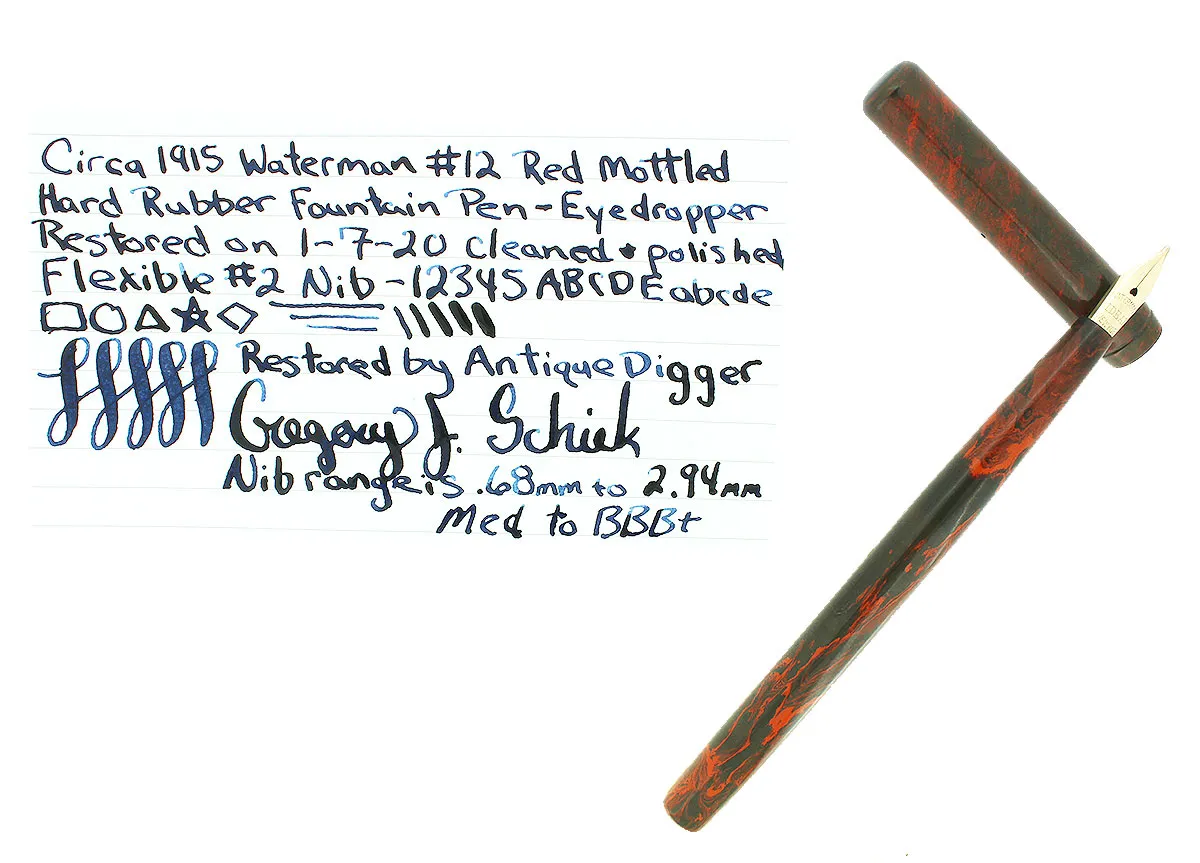 Circa 1915 Waterman #12 Red Mottled
Hard Rubber Fountain Pen - Eyedropper
Restored on 1-7-20 cleaned + polished
Flexible #2 Nib - 12345 ABCDE abcde
Restored by Antique Digger
Gregory J. Schiek
Nib range is .68mm to 2.94mm
Med to BBB+